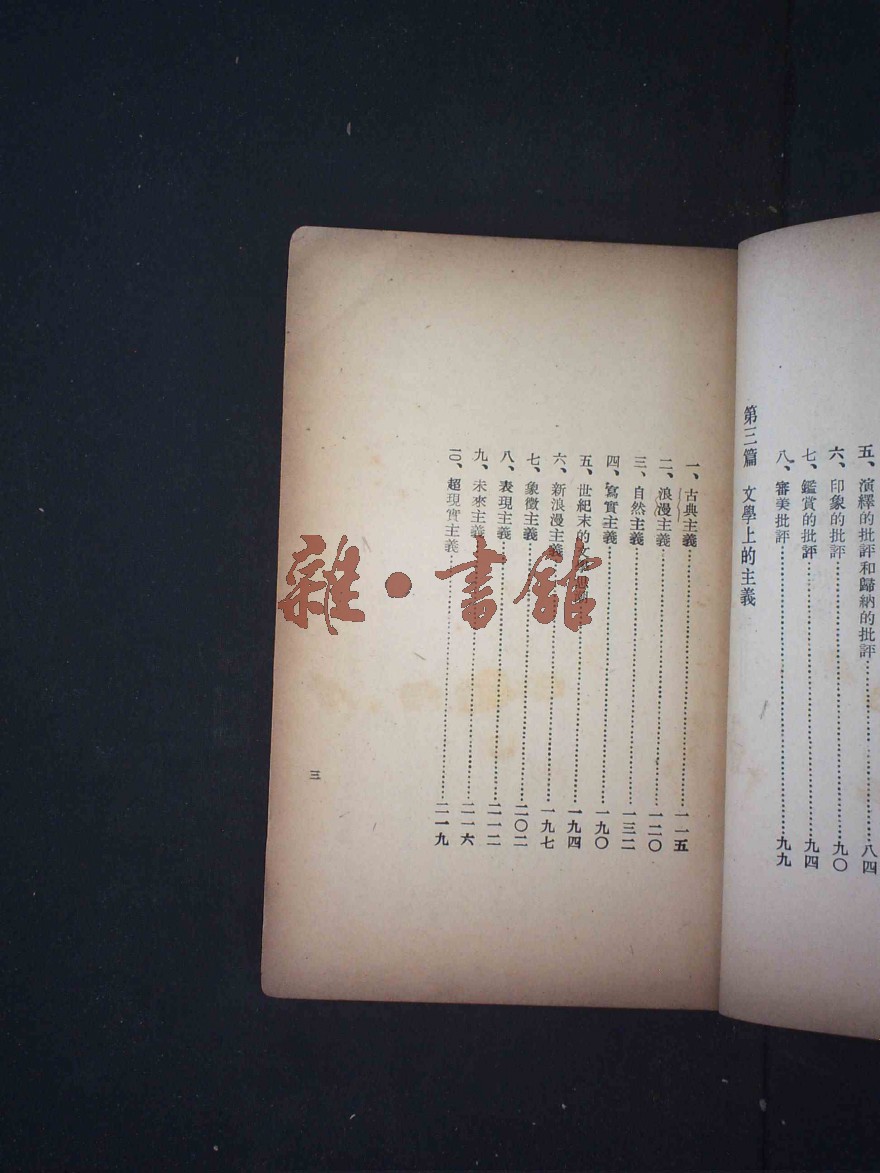 五、演繹的批評和歸納的批評……八四
六、印象的批評……九〇
七、鑑賞的批評……九四
八、審美批評……九九
第三篇 文學上的主義
一、古典主義……一一五
二、浪漫主義……一二〇
三、自然主義……一三二
四、寫實主義……一九〇
五、世紀末的……一九四
六、新浪漫主義……一九七
七、象徵主義……二〇二
八、表現主義……二一二
九、未來主義……二一六
一〇、超現實主義……二一九
三
雜·書館